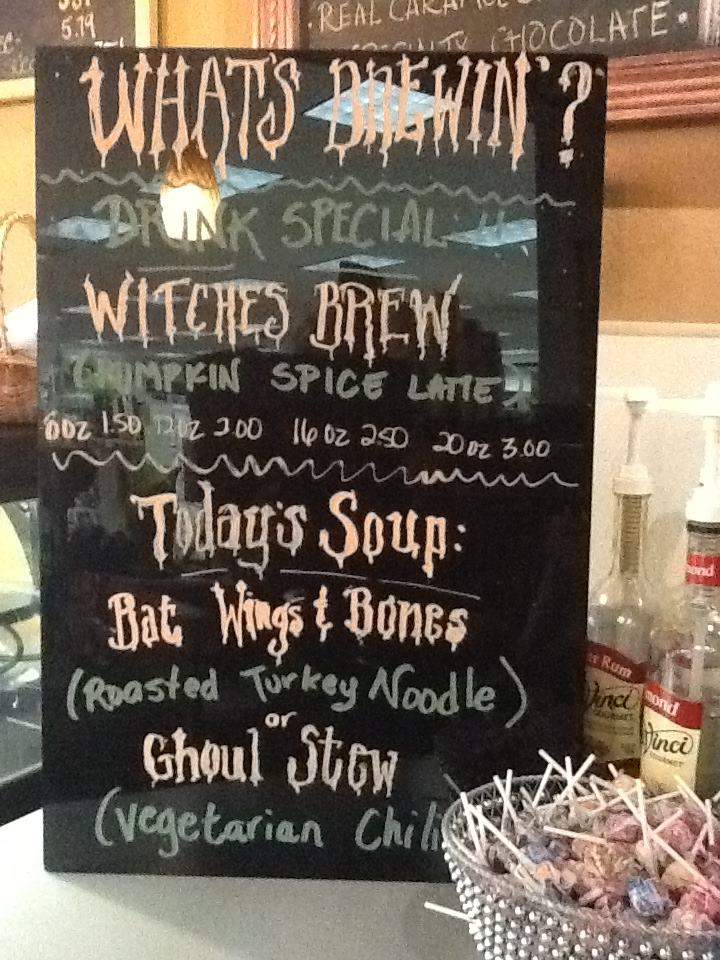 5.19
REAL CARAM
CHOCOLATE
WHAT'S BREWIN'?
DRINK SPECIAL
WITCHES BREW
(PUMPKIN SPICE LATTE)
6oz 1.50 12oz 2.00 16oz 2.50 20oz 3.00
Today's Soup:
Bat Wings & Bones
(Roasted Turkey Noodle)
or
Ghoul Stew
(Vegetarian Chili
er Rum
Vinci
GOURMET
mond
mond
Vinci
GOURMET